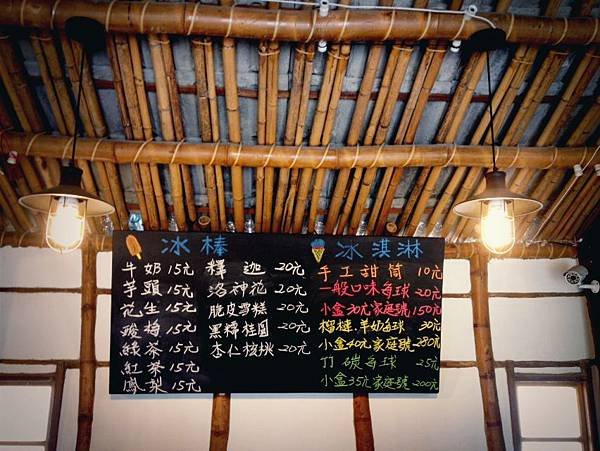 冰棒
牛奶 15元
芋頭 15元
花生 15元
酸梅 15元
綠茶 15元
紅茶 15元
鳳梨 15元
釋迦 20元
洛神花 20元
脆皮雪糕 20元
黑糯桂圓 20元
杏仁核桃 20元
冰淇淋
手工甜筒 10元
一般口味每球 20元
小盒30元家庭號 150元
榴槤.羊奶每球 30元
小盒40元家庭號 280元
竹碳每球 25元
小盒35元家庭號 200元